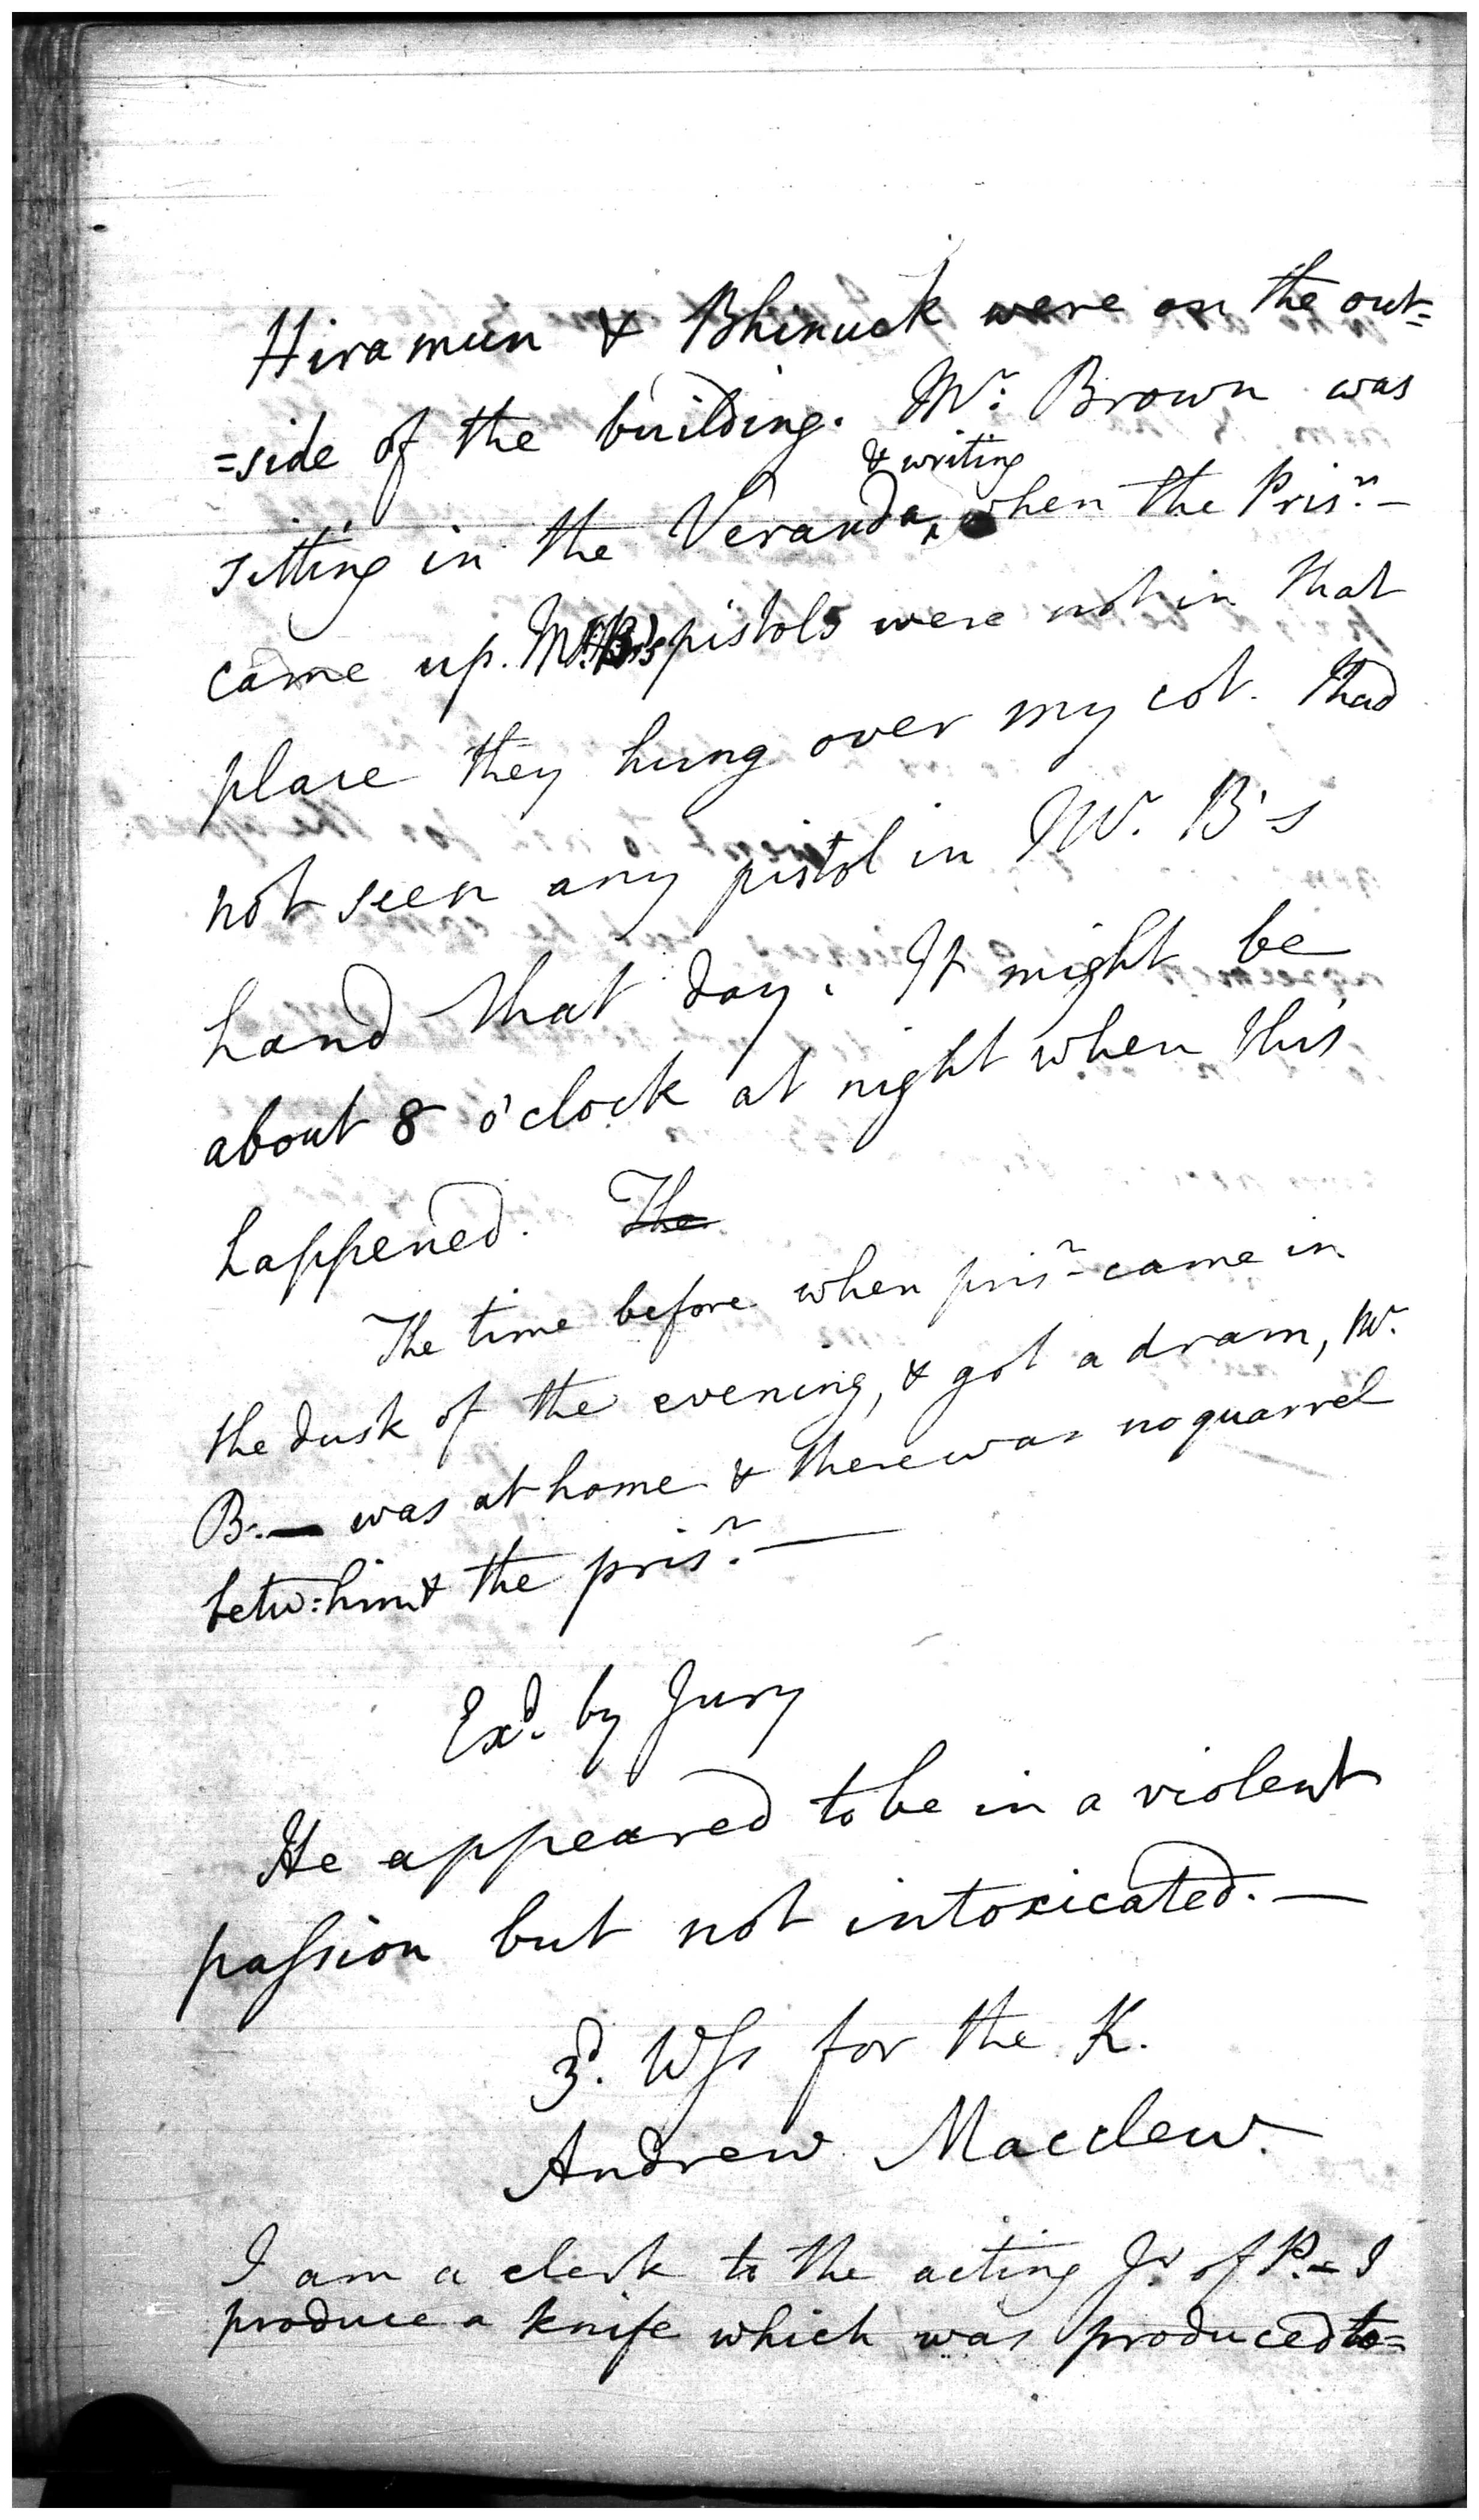 Hiramun & Bhinuck were on the out=
=side of the building. Mr. Brown was
& writing
sitting in the Veranda, when the Prisr. -
came up. Mr. B's pistols were not in that
place they hung over my cot. I had
not seen any pistol in Mr. B's
hand that day. It might be
about 8 o'clock at night when this
happened. The
The time before when prisr - came in
the dusk of the evening, & got a dram, Mr.
B. — was at home & there was no quarrel
betw: him & the prisr. —
Exd. by Jury
He appeared to be in a violent
passion but not intoxicated. —
3d. Wss for the K.
Andrew Macclew.
I am a clerk to the acting Jr. of P. - I
produce a knife which was produced to=